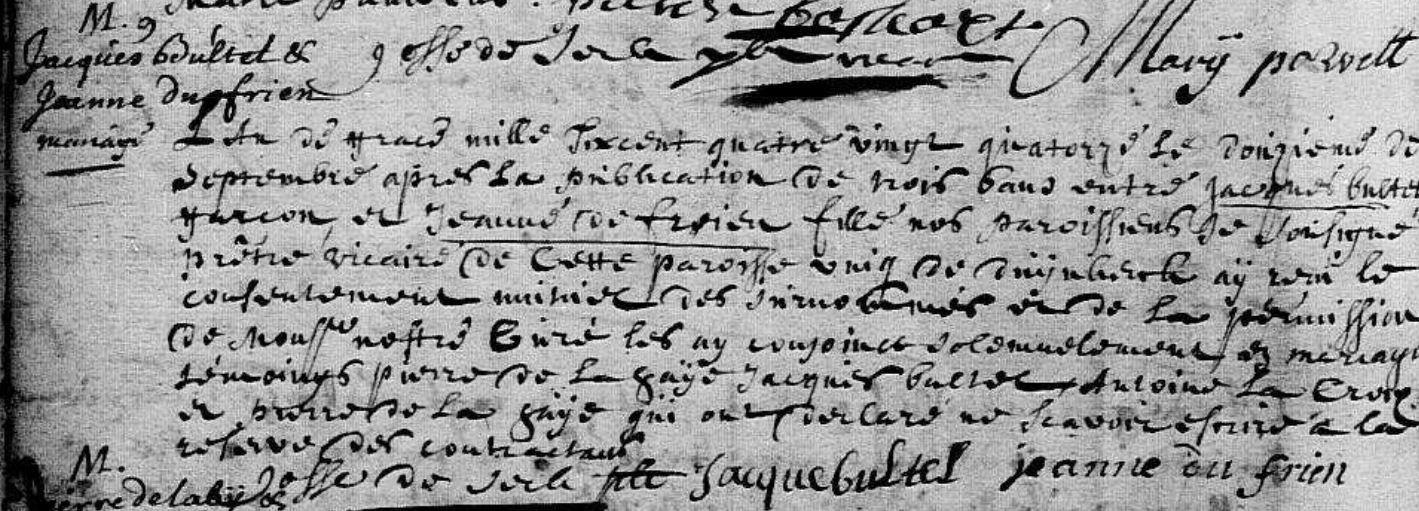 M. 9
Jacques Bultel &
Jeanne du frien
mariage
Josse de
Mary
L An de grace mille sixcent quatre vingt quatorze le douzieme de
septembre apres la publication de trois bans entre jacques bultel
garcon et Jeanne de frien fille nos paroissiens Je soussigné
prêtre vicaire de Cette paroisse de duynkerck ay receu le
consentement mutuel des surnommés et de la permission
de Monsr nostre Curé les ay conjoinct solemnelement en mariage
témoings pierre de la haÿe jacques bultel Antoine la Croix
et pierre de la haÿe qui ont declaré ne scavoir escrire a la
reserve des contractans
M.
Josse de jacque bultel jeanne du frien